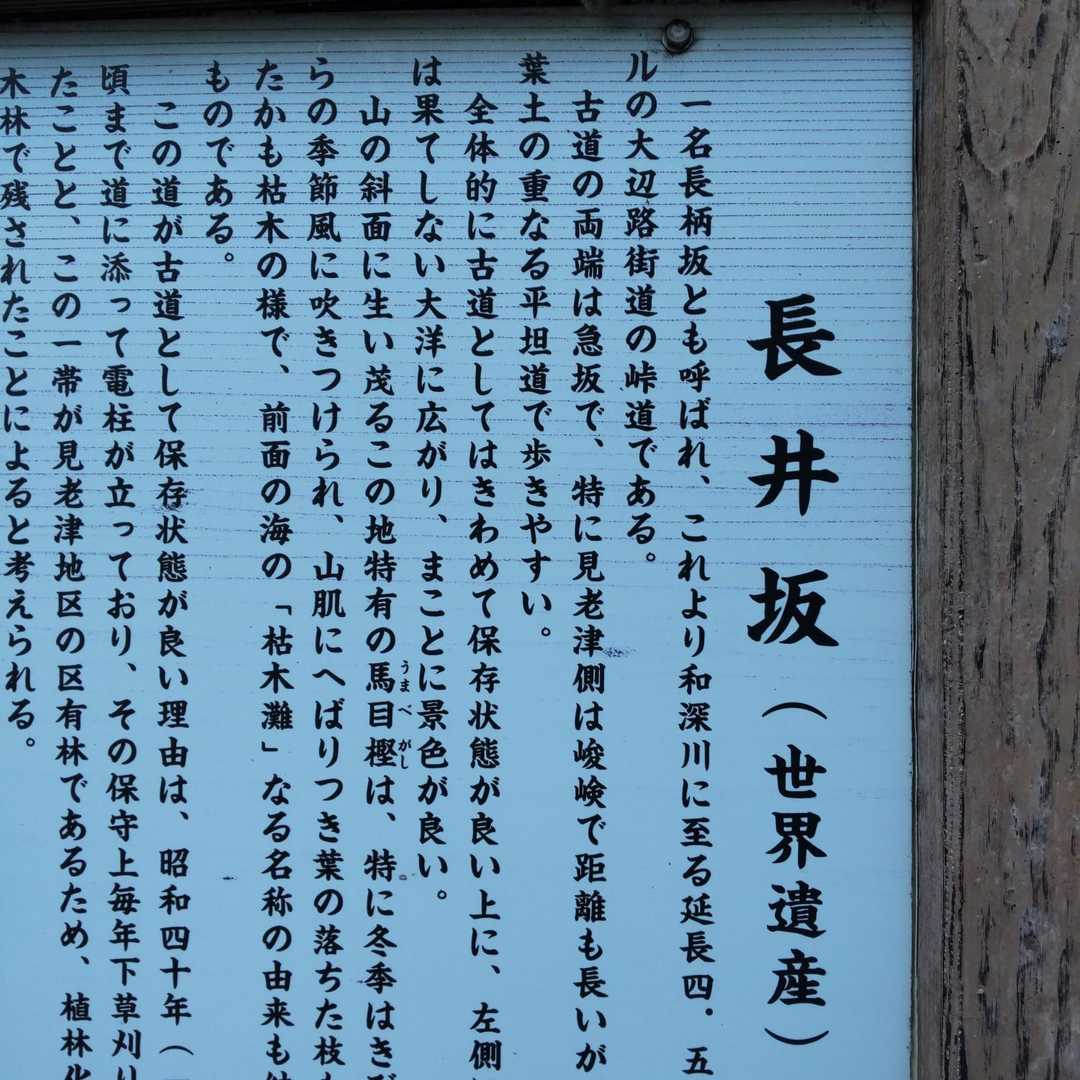 長井坂（世界遺産）
一名長柄坂とも呼ばれ、これより和深川に至る延長四．五
ルの大辺路街道の峠道である。
古道の両端は急坂で、特に見老津側は峻険で距離も長いが
葉土の重なる平坦道で歩きやすい。
全体的に古道としてはきわめて保存状態が良い上に、左側
は果てしない大洋に広がり、まことに景色が良い。
山の斜面に生い茂るこの地特有の馬目樫は、特に冬季はき
らの季節風に吹きつけられ、山肌にへばりつき葉の落ちた枝
たかも枯木の様で、前面の海の「枯木灘」なる名称の由来も
ものである。
この道が古道として保存状態が良い理由は、昭和四十年（
頃まで道に添って電柱が立っており、その保守上毎年下草刈り
たことと、この一帯が見老津地区の区有林であるため、植林化
木林で残されたことによると考えられる。